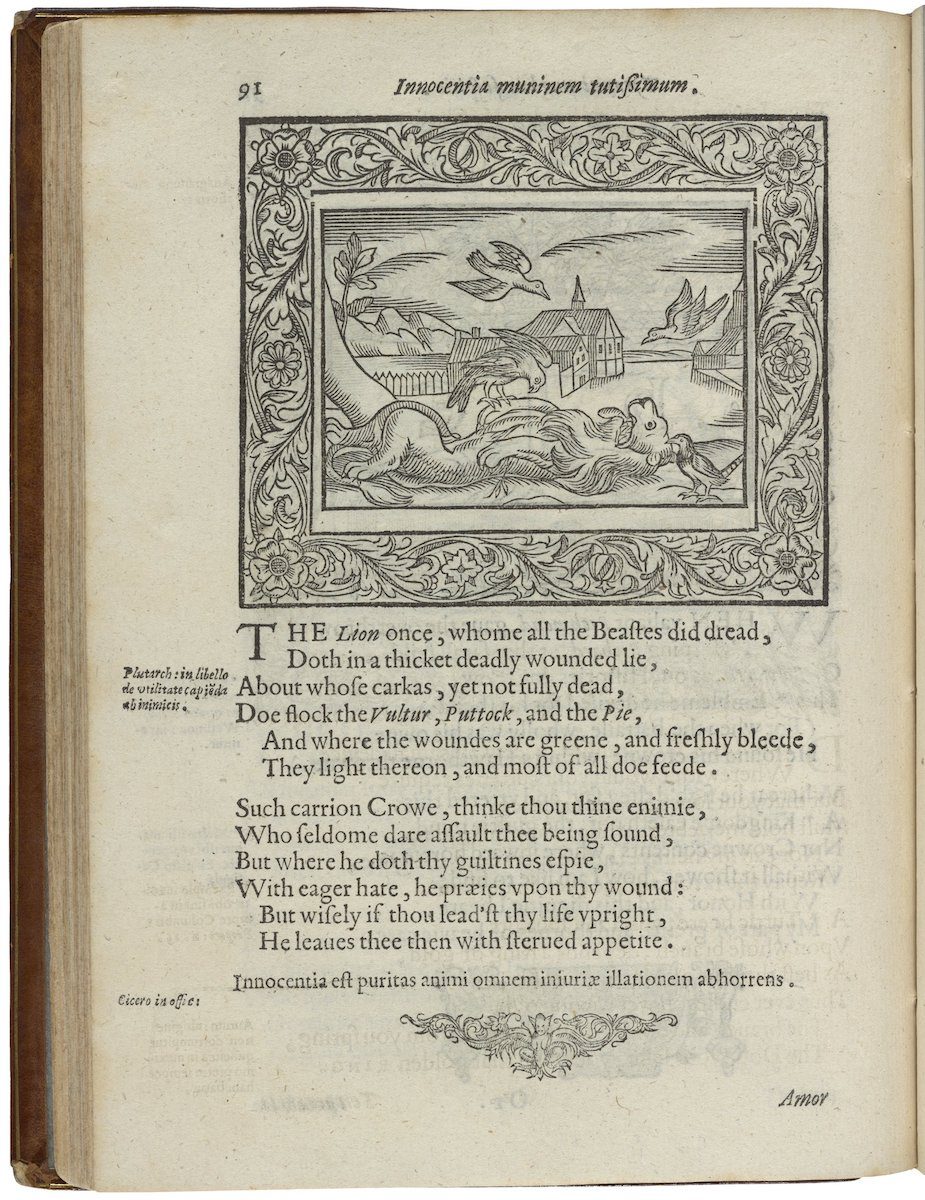 91
Innocentia muninem tutißimum.
THE Lion once, whome all the Beastes did dread,
Doth in a thicket deadly wounded lie,
Plutarch: in libello
de vtilitate capiẽda
ab inimicis.
About whose carkas, yet not fully dead,
Doe flock the Vultur, Puttock, and the Pie,
And where the woundes are greene, and freshly bleede,
They light thereon, and most of all doe feede.
Such carrion Crowe, thinke thou thine enimie,
Who seldome dare assault thee being sound,
But where he doth thy guiltines espie,
With eager hate, he præies vpon thy wound:
But wisely if thou lead'st thy life vpright,
He leaues thee then with sterued appetite.
Innocentia est puritas animi omnem iniuriæ illationem abhorrens.
Cicero in offic:
Amor